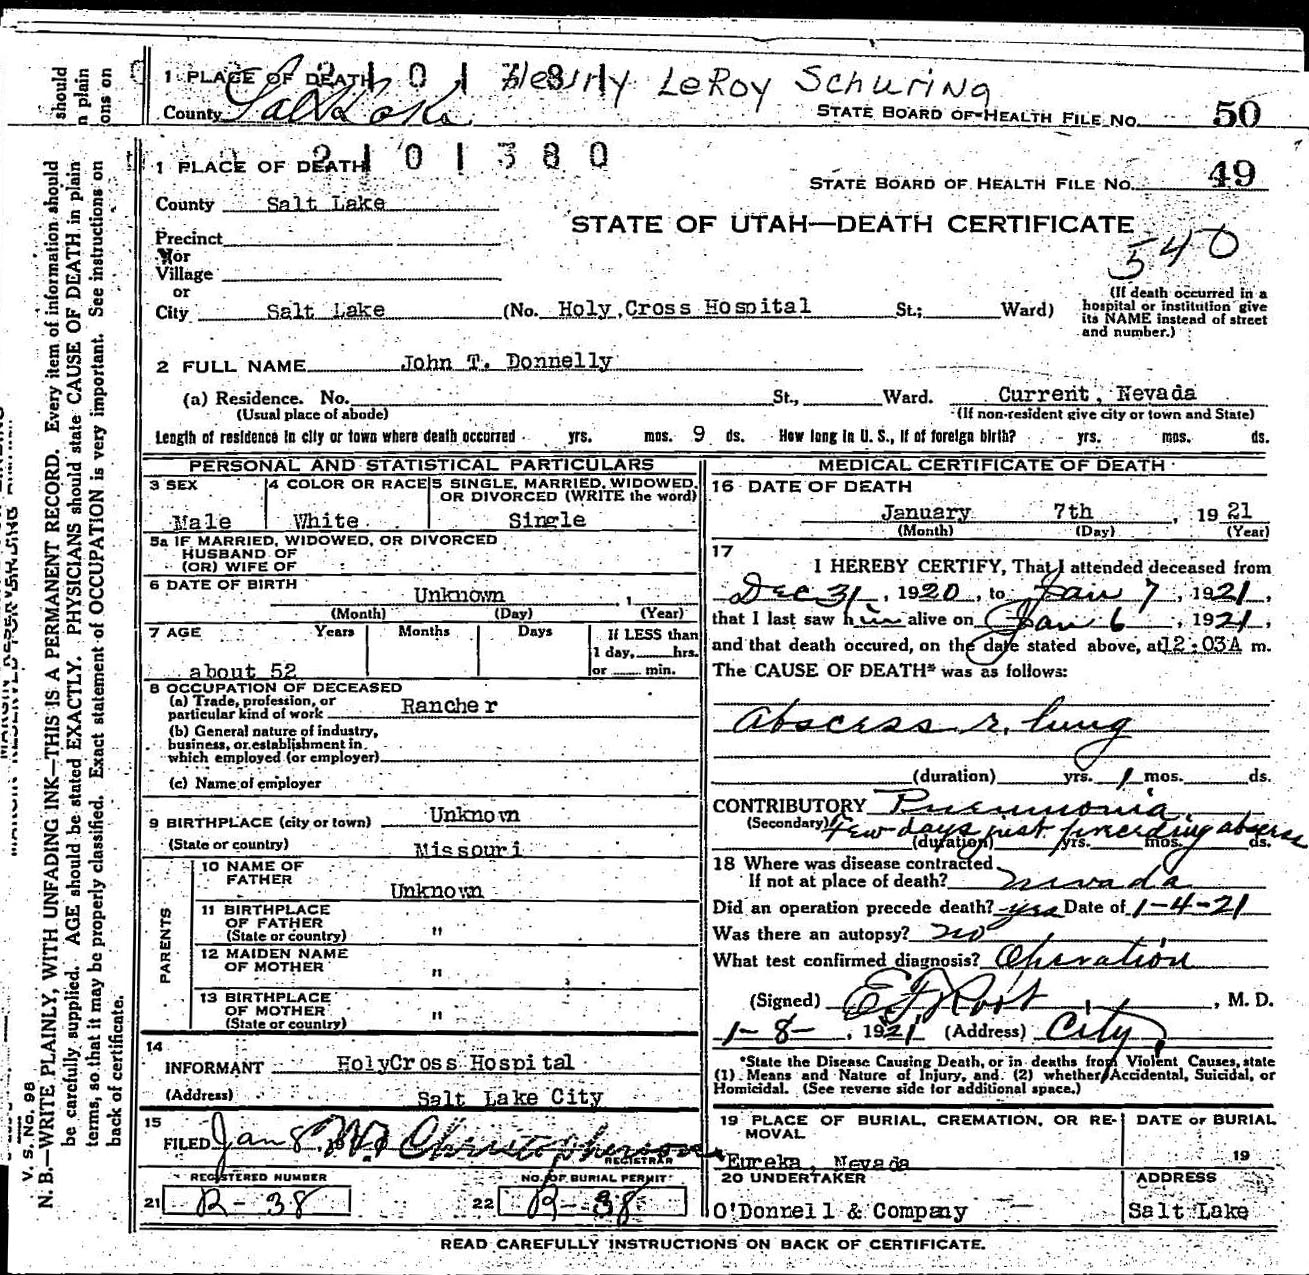 1 PLACE OF DEATH 2101381 Henry LeRoy Schuring
County Salt Lake STATE BOARD OF HEALTH FILE NO. 50
1 PLACE OF DEATH 2101380
STATE BOARD OF HEALTH FILE NO. 49
County Salt Lake
STATE OF UTAH—DEATH CERTIFICATE
540
Precinct
or
Village
or
City Salt Lake (No. Holy Cross Hospital St.; Ward)
(If death occurred in a
hospital or institution give
its NAME instead of street
and number.)
2 FULL NAME John T. Donnelly
(a) Residence. No. St., Ward. Current, Nevada
(Usual place of abode) (If non-resident give city or town and State)
Length of residence in city or town where death occurred yrs. mos. 9 ds. How long in U. S., if of foreign birth? yrs. mos. ds.
PERSONAL AND STATISTICAL PARTICULARS
3 SEX 4 COLOR OR RACE 5 SINGLE, MARRIED, WIDOWED,
OR DIVORCED (WRITE the word)
Male White Single
5a IF MARRIED, WIDOWED, OR DIVORCED
HUSBAND OF
(OR) WIFE OF
6 DATE OF BIRTH Unknown
(Month) (Day) (Year)
7 AGE Years Months Days If LESS than
1 day, hrs.
about 52 or min.
8 OCCUPATION OF DECEASED
(a) Trade, profession, or
particular kind of work Rancher
(b) General nature of industry,
business, or establishment in
which employed (or employer)
(c) Name of employer
9 BIRTHPLACE (city or town) Unknown
(State or country) Missouri
PARENTS
10 NAME OF
FATHER Unknown
11 BIRTHPLACE
OF FATHER
(State or country) "
12 MAIDEN NAME
OF MOTHER "
13 BIRTHPLACE
OF MOTHER
(State or country) "
14
INFORMANT HolyCross Hospital
(Address) Salt Lake City
15
FILED Jan 8 W. Christopherson
REGISTRAR
REGISTERED NUMBER NO. OF BURIAL PERMIT
21 R-38 22 R-38
MEDICAL CERTIFICATE OF DEATH
16 DATE OF DEATH
January 7th, 1921
(Month) (Day) (Year)
17
I HEREBY CERTIFY, That I attended deceased from
Dec 31, 1920, to Jan 7, 1921,
that I last saw him alive on Jan 6, 1921,
and that death occured, on the date stated above, at 12:03A m.
The CAUSE OF DEATH* was as follows:
Abscess r. lung
(duration) yrs. 1 mos. ds.
CONTRIBUTORY Pneumonia
(Secondary) Few days just preceding abscess
(duration) yrs. mos. ds.
18 Where was disease contracted
If not at place of death? Nevada
Did an operation precede death? yes Date of 1-4-21
Was there an autopsy? no
What test confirmed diagnosis? Operation
(Signed) E F Root, M. D.
1-8-, 1921 (Address) City
*State the Disease Causing Death, or in deaths from Violent Causes, state
(1) Means and Nature of Injury, and (2) whether Accidental, Suicidal, or
Homicidal. (See reverse side for additional space.)
19 PLACE OF BURIAL, CREMATION, OR RE-
MOVAL
DATE OF BURIAL
Eureka, Nevada 19
20 UNDERTAKER ADDRESS
O'Donnell & Company Salt Lake
READ CAREFULLY INSTRUCTIONS ON BACK OF CERTIFICATE.
V. S. No. 98
N. B.—WRITE PLAINLY, WITH UNFADING INK—THIS IS A PERMANENT RECORD. Every item of information should
be carefully supplied. AGE should be stated EXACTLY. PHYSICIANS should state CAUSE OF DEATH in plain
terms, so that it may be properly classified. Exact statement of OCCUPATION is very important. See instructions on
back of certificate.
should
n plain
ons on